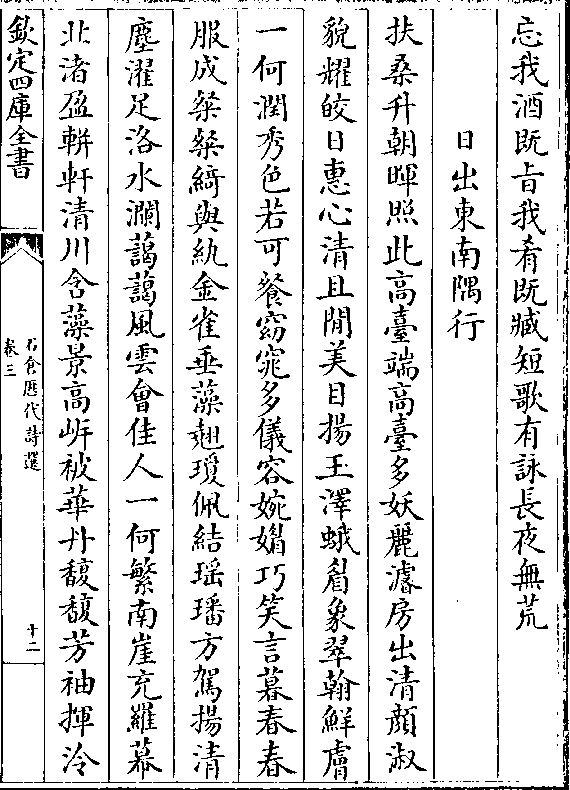 忘我酒既㫖我肴既臧短歌有詠長夜無荒
日出東南隅行
扶桑升朝暉照此高臺端高臺多妖麗濬房出清顔淑
貌耀皎日惠心清且閒美目揚玉澤蛾眉象翠翰鮮膚
一何潤秀色若可餐窈窕多儀容婉媚巧笑言暮春春
服成粲粲綺與紈金雀垂藻翹瓊佩結瑶璠方駕揚清
塵濯足洛水瀾藹藹風雲會佳人一何繁南崖充羅幕
北渚盈軿軒清川含藻景髙岓被華丹馥馥芳袖揮泠
欽定四庫全書
石倉歴代詩選
卷三
十二